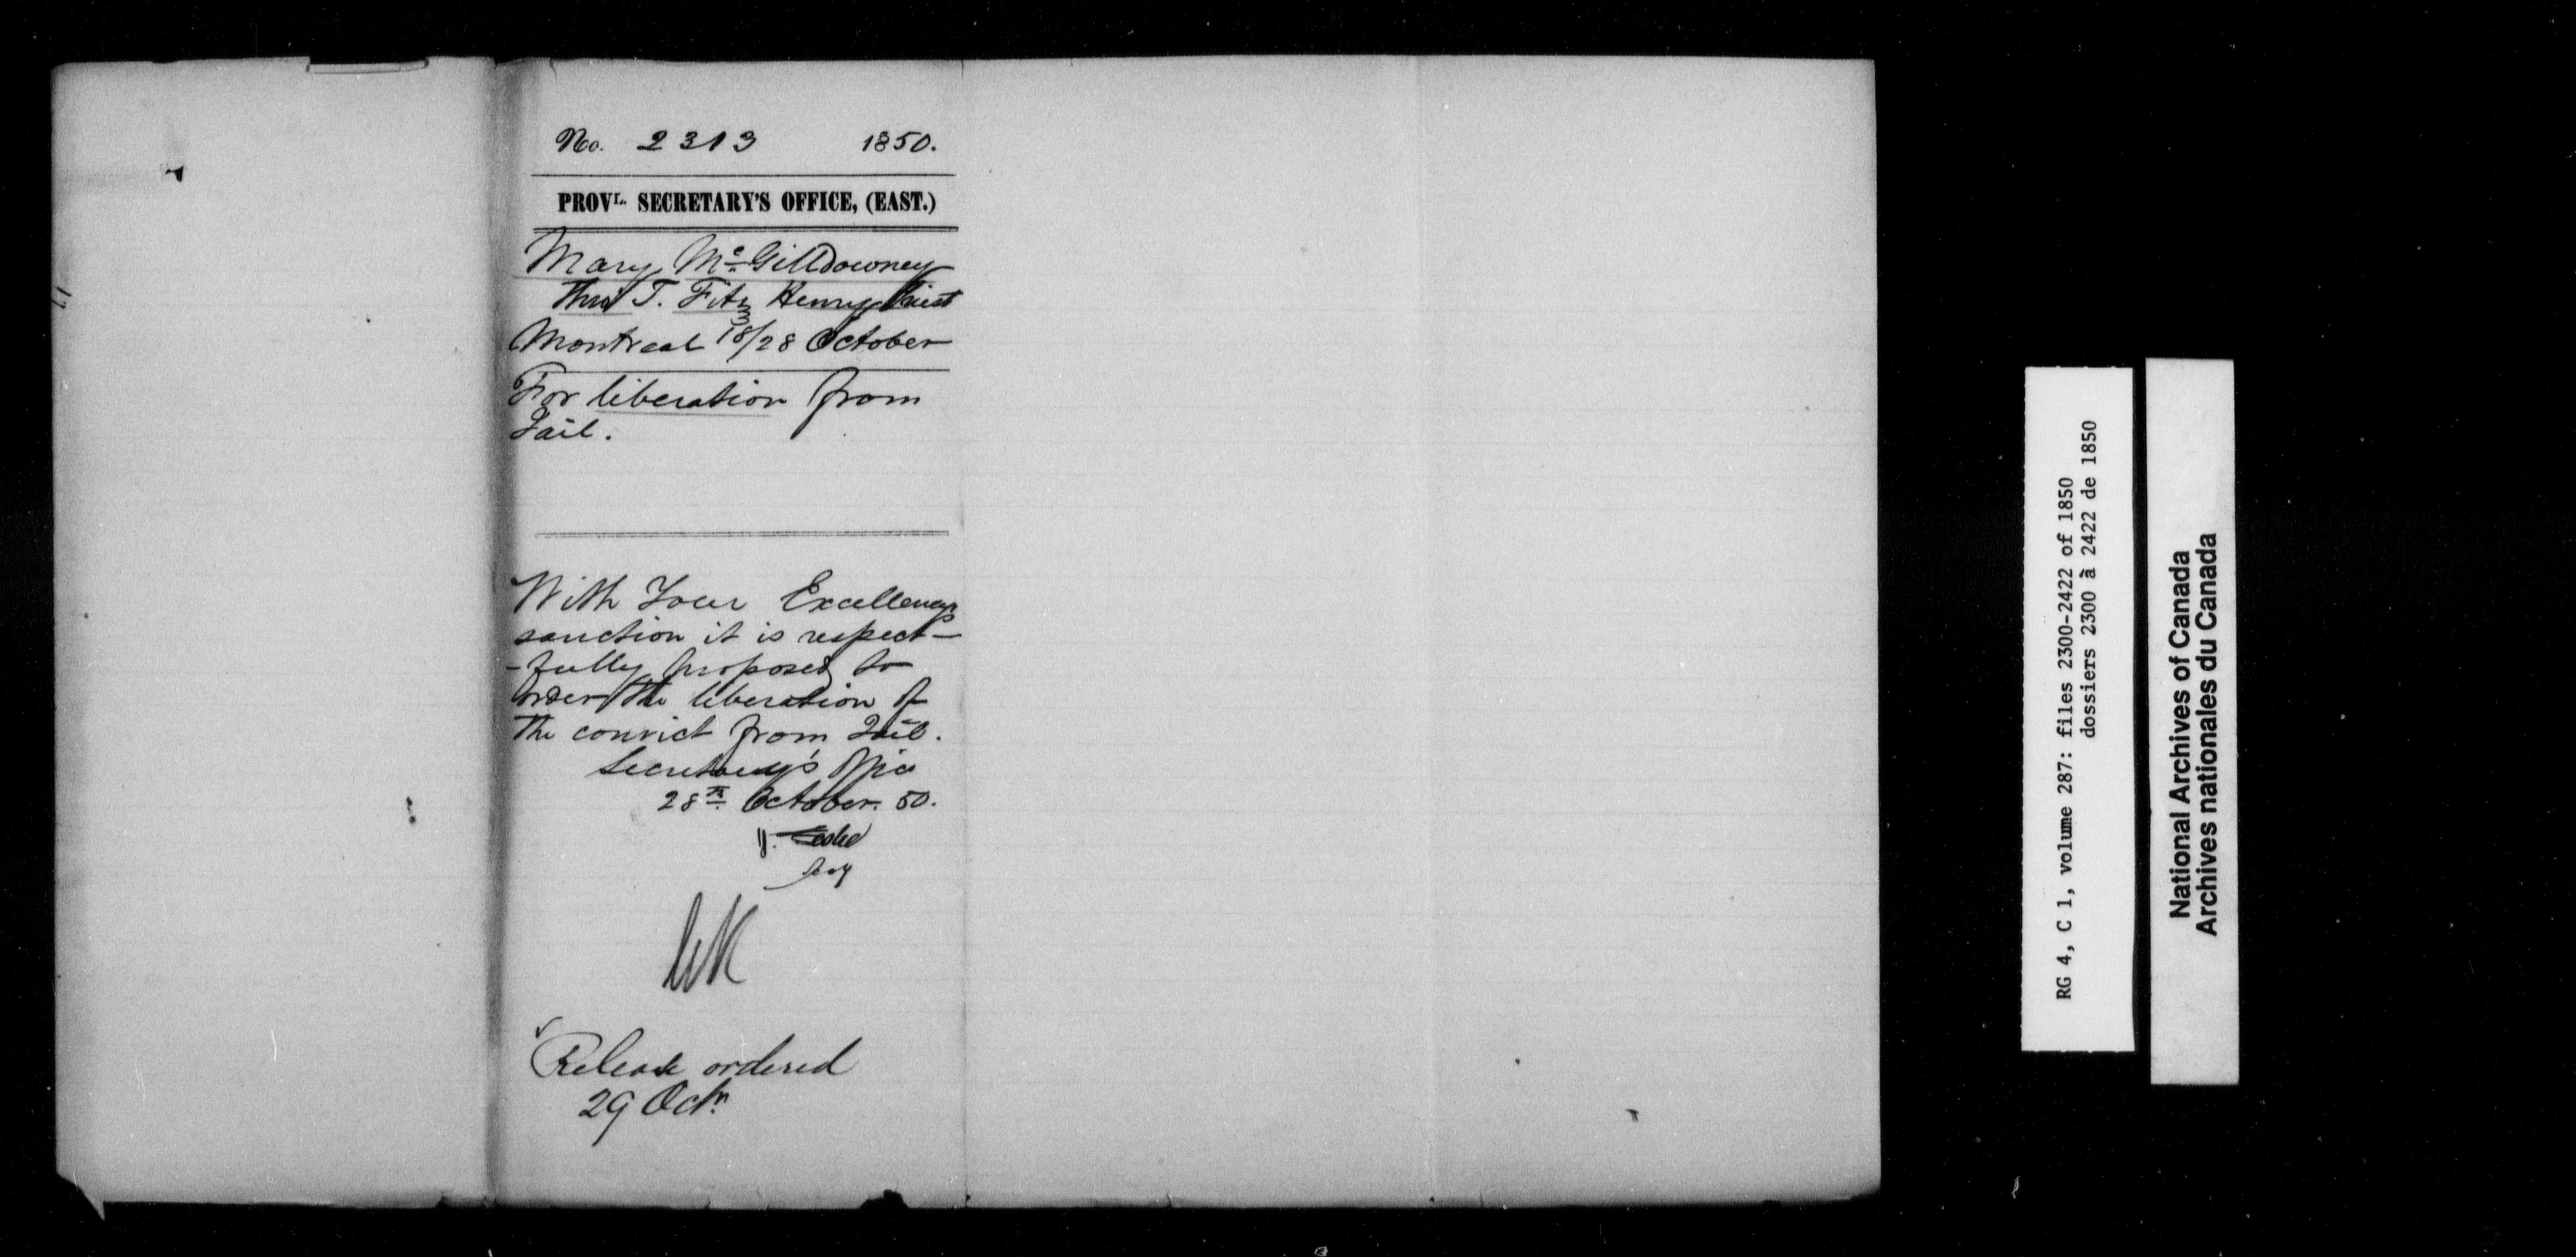 No. 2313 1850.
PROVL. SECRETARY'S OFFICE, (EAST.)
Mary McGilldowney
Thro' T. Fitz Henry Priest
Montreal 18/28 October
For liberation from
Jail.
With Your Excellency's
sanction it is respect-
-fully proposed to
order the liberation of
the convict from Jail.
Secretary's Office
28th October. 50.
J. Leslie
Secy
Release ordered
29 Octr.
RG 4, C 1, volume 287: files 2300-2422 of 1850
dossiers 2300 à 2422 de 1850
National Archives of Canada
Archives nationales du Canada